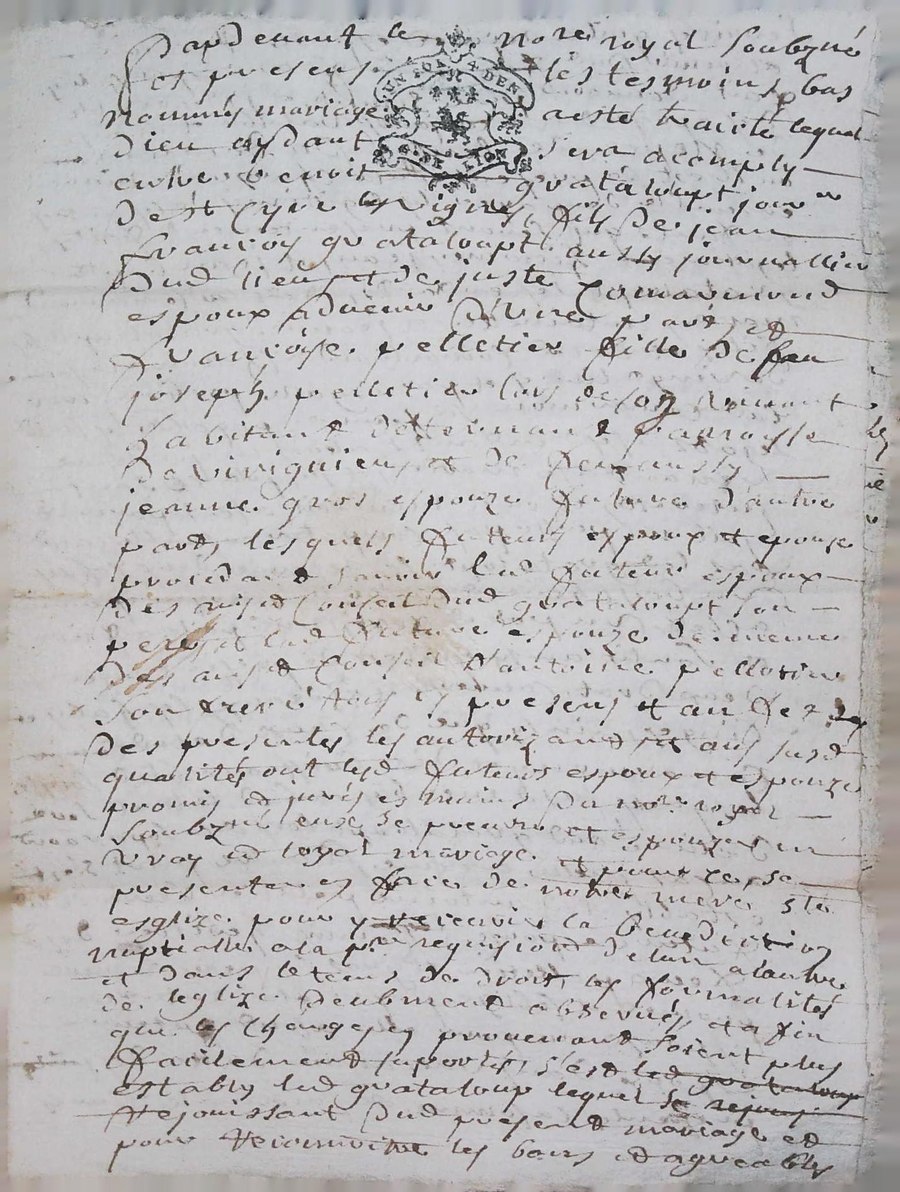 Pardevant le no.re royal soubzné
et presens les tesmoins bas
UN SOL 4 DEN
nommés mariage a esté traicté lequel
G. DE LION
Dieu aydant sera acomply
entre benoit gvataloupt jour
de st Cyre les vignes fils de jean
françoy gvataloupt aussy journallier
dud lieu et de juste Comarmond
espoux advenir d'vne part et
françoise pelletier fille de feu
joseph pelletier lors de son vivant
habitant de ternant parroisse
de virignieu et de aussy
jeanne gros espouze future d'autre
part, lesquels futeurs expoux et epouse
procedant sauoir lud futeur espoux
des avis et Conseil dud gvataloupt son
pere et lad future espouze de meme
des avis et Conseil d'antoine pelletier
son frere tous presens et au
des presentes les autorizant et aux susd
qualités ont lesd futeurs espoux et espouze
promis et jurés es mains du no.re royal
soubzné de prendre et espouzer en
vray et loyal mariage et pour ce se
presenter en face de notre mere ste
esglize pour y recevoir la benediction
nuptialle a la p.re requision de lun a lautre
et dans le tems de droit les formalités
de leglize deubment observés et afin
que les charges en provenant soient plus
facilement suportés, s'est led gvataloup
estably led gvataloup lequel se rejouis
rejouissant dud present mariage et
pour reconnoitre les bons et agreables